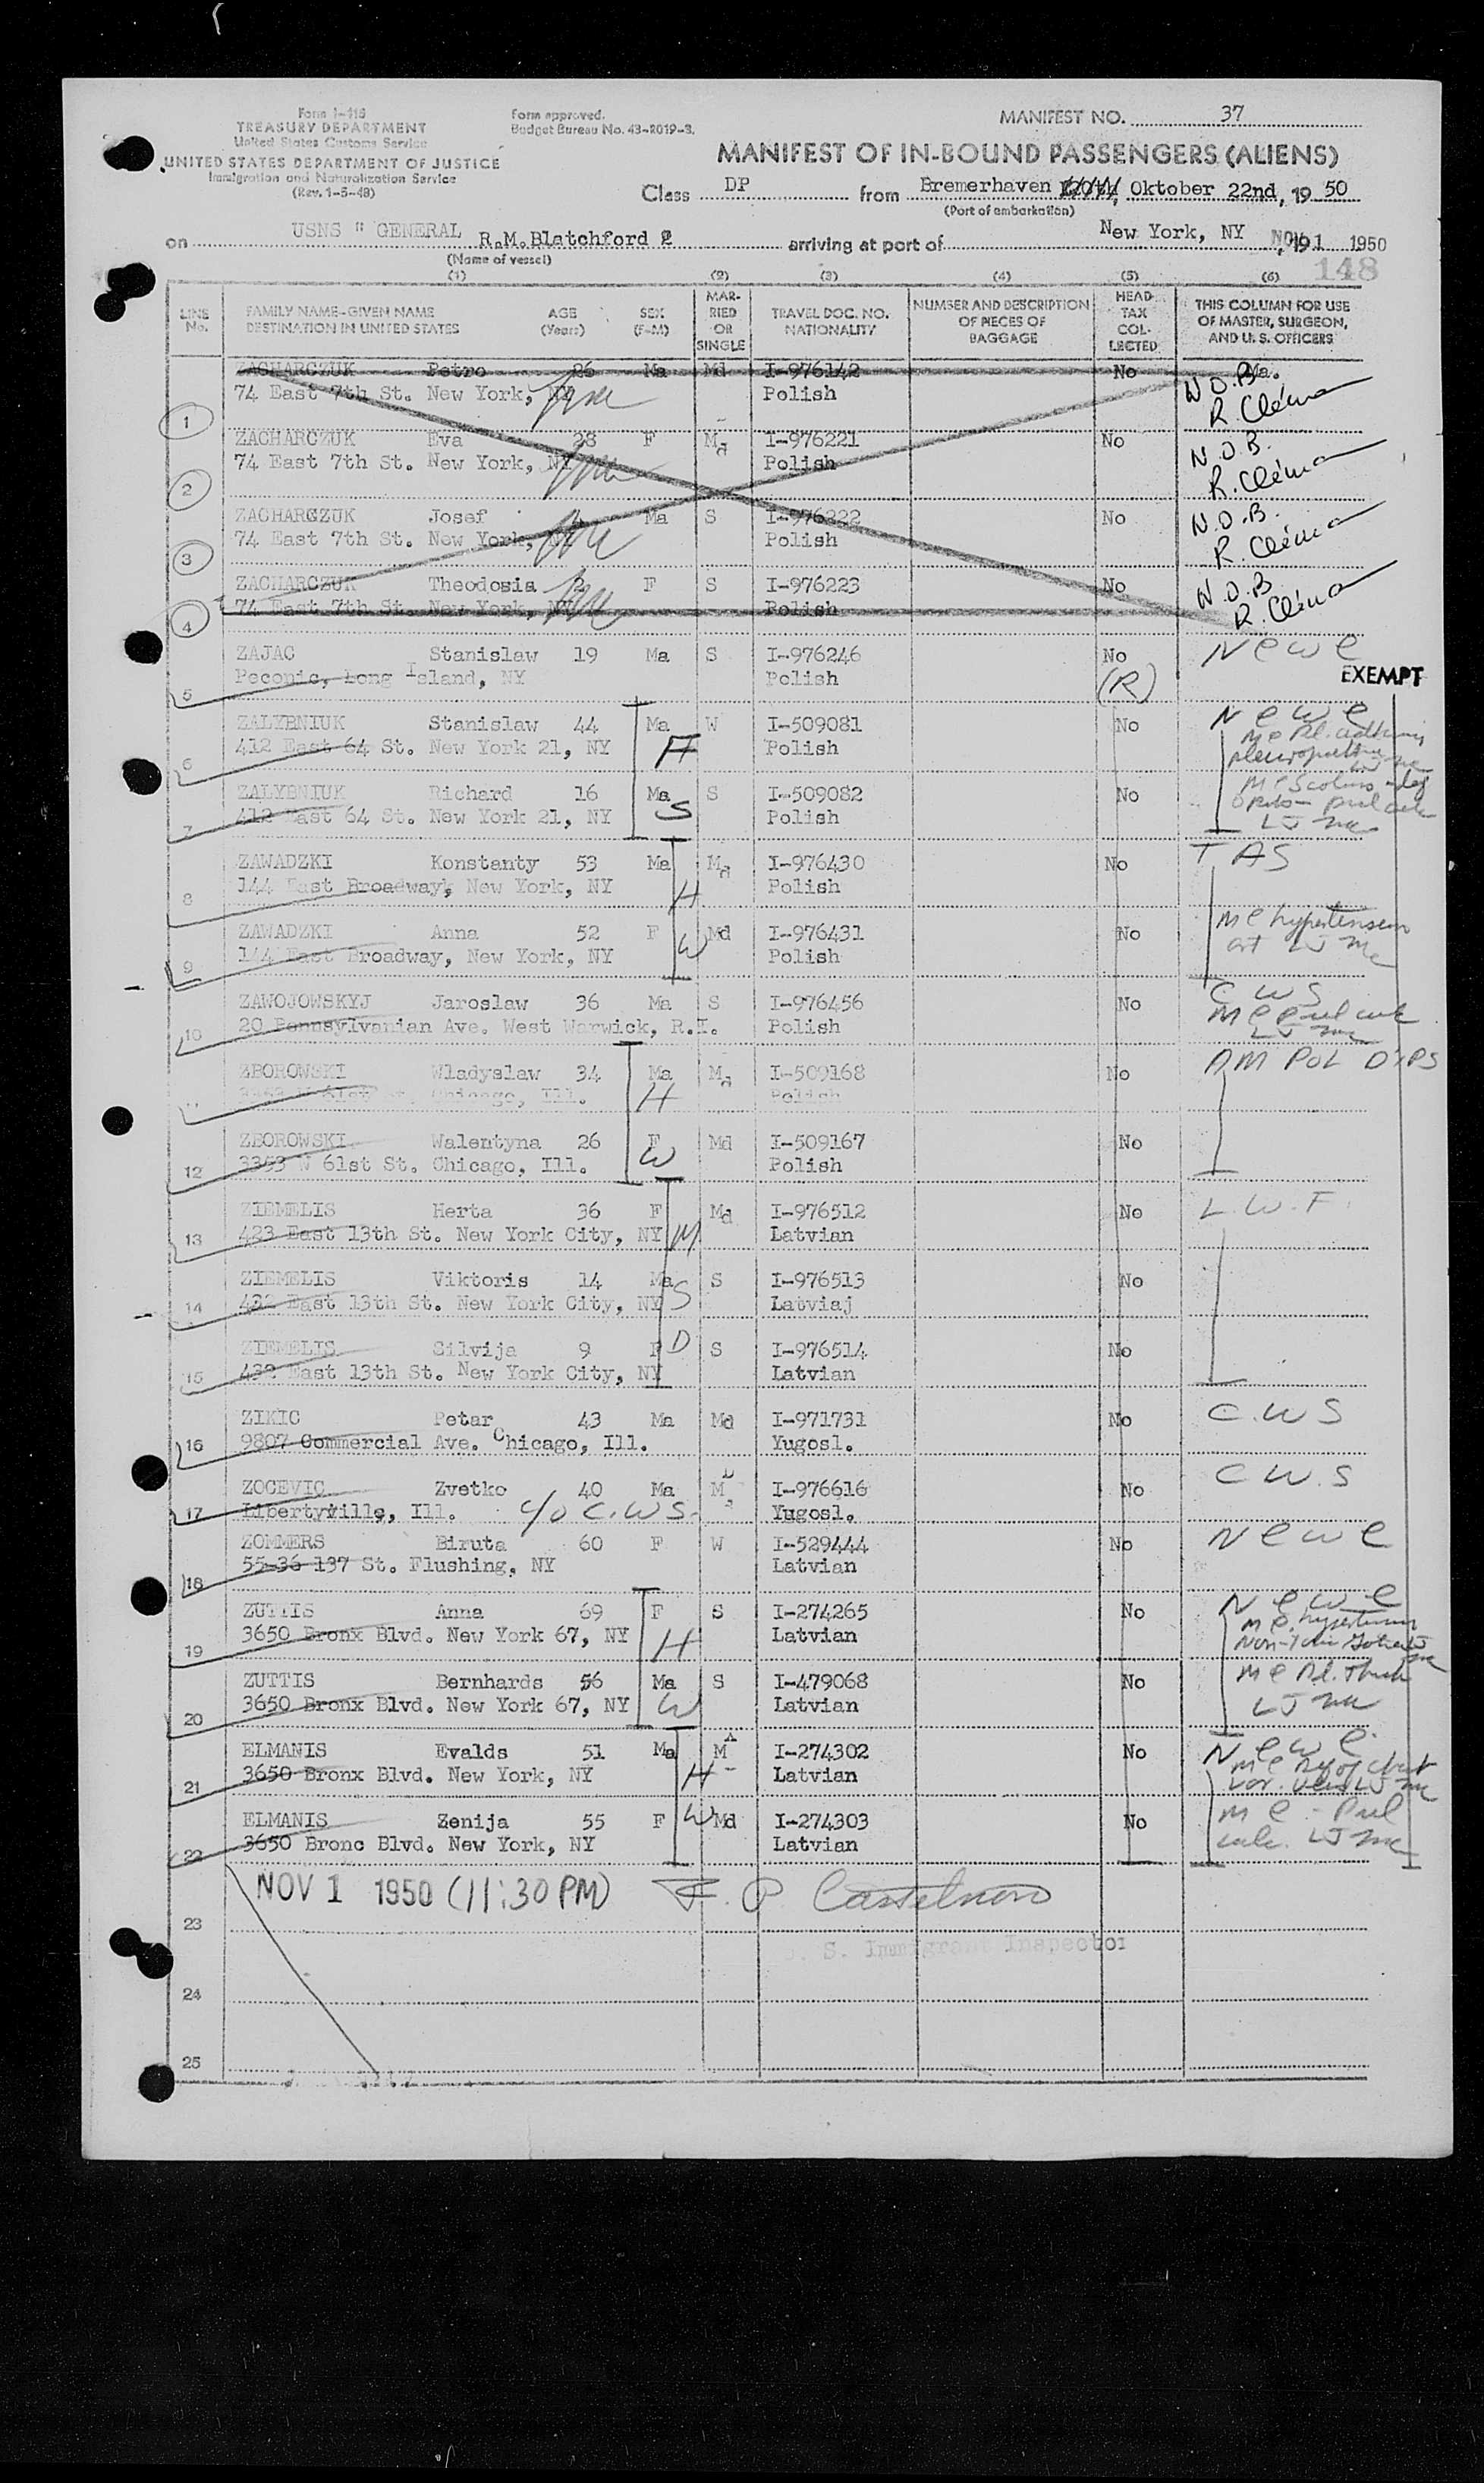 Form I-415
TREASURY DEPARTMENT
United States Customs Service
UNITED STATES DEPARTMENT OF JUSTICE
Immigration and Naturalization Service
(Rev. 1-5-48)
Form approved.
Budget Bureau No. 43-R019-3.
MANIFEST NO. 37
MANIFEST OF IN-BOUND PASSENGERS (ALIENS)
Class DP from Bremerhaven Oktober 22nd, 19 50
(Port of embarkation)
on USNS " GENERAL R.M.Blatchford arriving at port of New York, NY NOV 1 1950
(Name of vessel)
148
(1) (2) (3) (4) (5) (6)
LINE No. FAMILY NAME-GIVEN NAME DESTINATION IN UNITED STATES AGE (Years) SEX (F-M) MARRIED OR SINGLE TRAVEL DOC. NO. NATIONALITY NUMBER AND DESCRIPTION OF PIECES OF BAGGAGE HEAD TAX COLLECTED THIS COLUMN FOR USE OF MASTER, SURGEON, AND U. S. OFFICERS
ZACHARCZUK Petro 26 Ma Md I-976142 No Ma. N.O.B.
1 74 East 7th St. New York, NY Polish R. Cléma
ZACHARCZUK Eva 28 F Md I-976221 No N.O.B.
2 74 East 7th St. New York, NY Polish R. Cléma
ZACHARCZUK Josef 4 Ma S I-976222 No N.O.B.
3 74 East 7th St. New York, NY Polish R. Cléma
ZACHARCZUK Theodosia 2 F S I-976223 No N.O.B
4 74 East 7th St. New York, NY Polish R. Cléma
ZAJAC Stanislaw 19 Ma S I-976246 No N e w e
5 Peconic, Long Island, NY Polish (R) EXEMPT
ZALYBNIUK Stanislaw 44 Ma W I-509081 No N e w e
6 412 East 64 St. New York 21, NY F Polish
ZALYBNIUK Richard 16 Ma S I-509082 No
7 412 East 64 St. New York 21, NY S Polish
ZAWADZKI Konstanty 53 Ma Md I-976430 No T A S
8 144 East Broadway, New York, NY H Polish
ZAWADZKI Anna 52 F Md I-976431 No M C hypertension
9 144 East Broadway, New York, NY W Polish
ZAWOJOWSKYJ Jaroslaw 36 Ma S I-976456 No C W S
10 20 Pennsylvanian Ave. West Warwick, R.I. Polish
ZBOROWSKI Wladyslaw 34 Ma Md I-509168 No AM POL D'PS
61st St. Chicago, Ill. H Polish
ZBOROWSKI Walentyna 26 F Md I-509167 No
12 3353 W 61st St. Chicago, Ill. W Polish
ZIEMELIS Herta 36 F Md I-976512 No L. W. F.
13 423 East 13th St. New York City, NY M Latvian
ZIEMELIS Viktoris 14 Ma S I-976513 No
14 432 East 13th St. New York City, NY S Latviaj
ZIEMELIS Silvija 9 F D S I-976514 No
15 432 East 13th St. New York City, NY Latvian
ZIKIC Petar 43 Ma Md I-971731 No C. W S
16 9807 Commercial Ave. Chicago, Ill. Yugosl.
ZOCEVIC Zvetko 40 Ma M I-976616 No C W. S
17 Libertyville, Ill. c/o C.W S. Yugosl.
ZOMMERS Biruta 60 F W I-529444 No N e w e
18 55-36 137 St. Flushing, NY Latvian
ZUTTIS Anna 69 F S I-274265 No N e w e
19 3650 Bronx Blvd. New York 67, NY H Latvian
ZUTTIS Bernhards 56 Ma S I-479068 No
20 3650 Bronx Blvd. New York 67, NY W Latvian
ELMANIS Evalds 51 Ma M I-274302 No N e w e.
21 3650 Bronx Blvd. New York, NY H Latvian
ELMANIS Zenija 55 F W Md I-274303 No
22 3650 Bronc Blvd. New York, NY Latvian
NOV 1 1950 (11:30 PM)
23
S. Immigrant Inspector
24
25